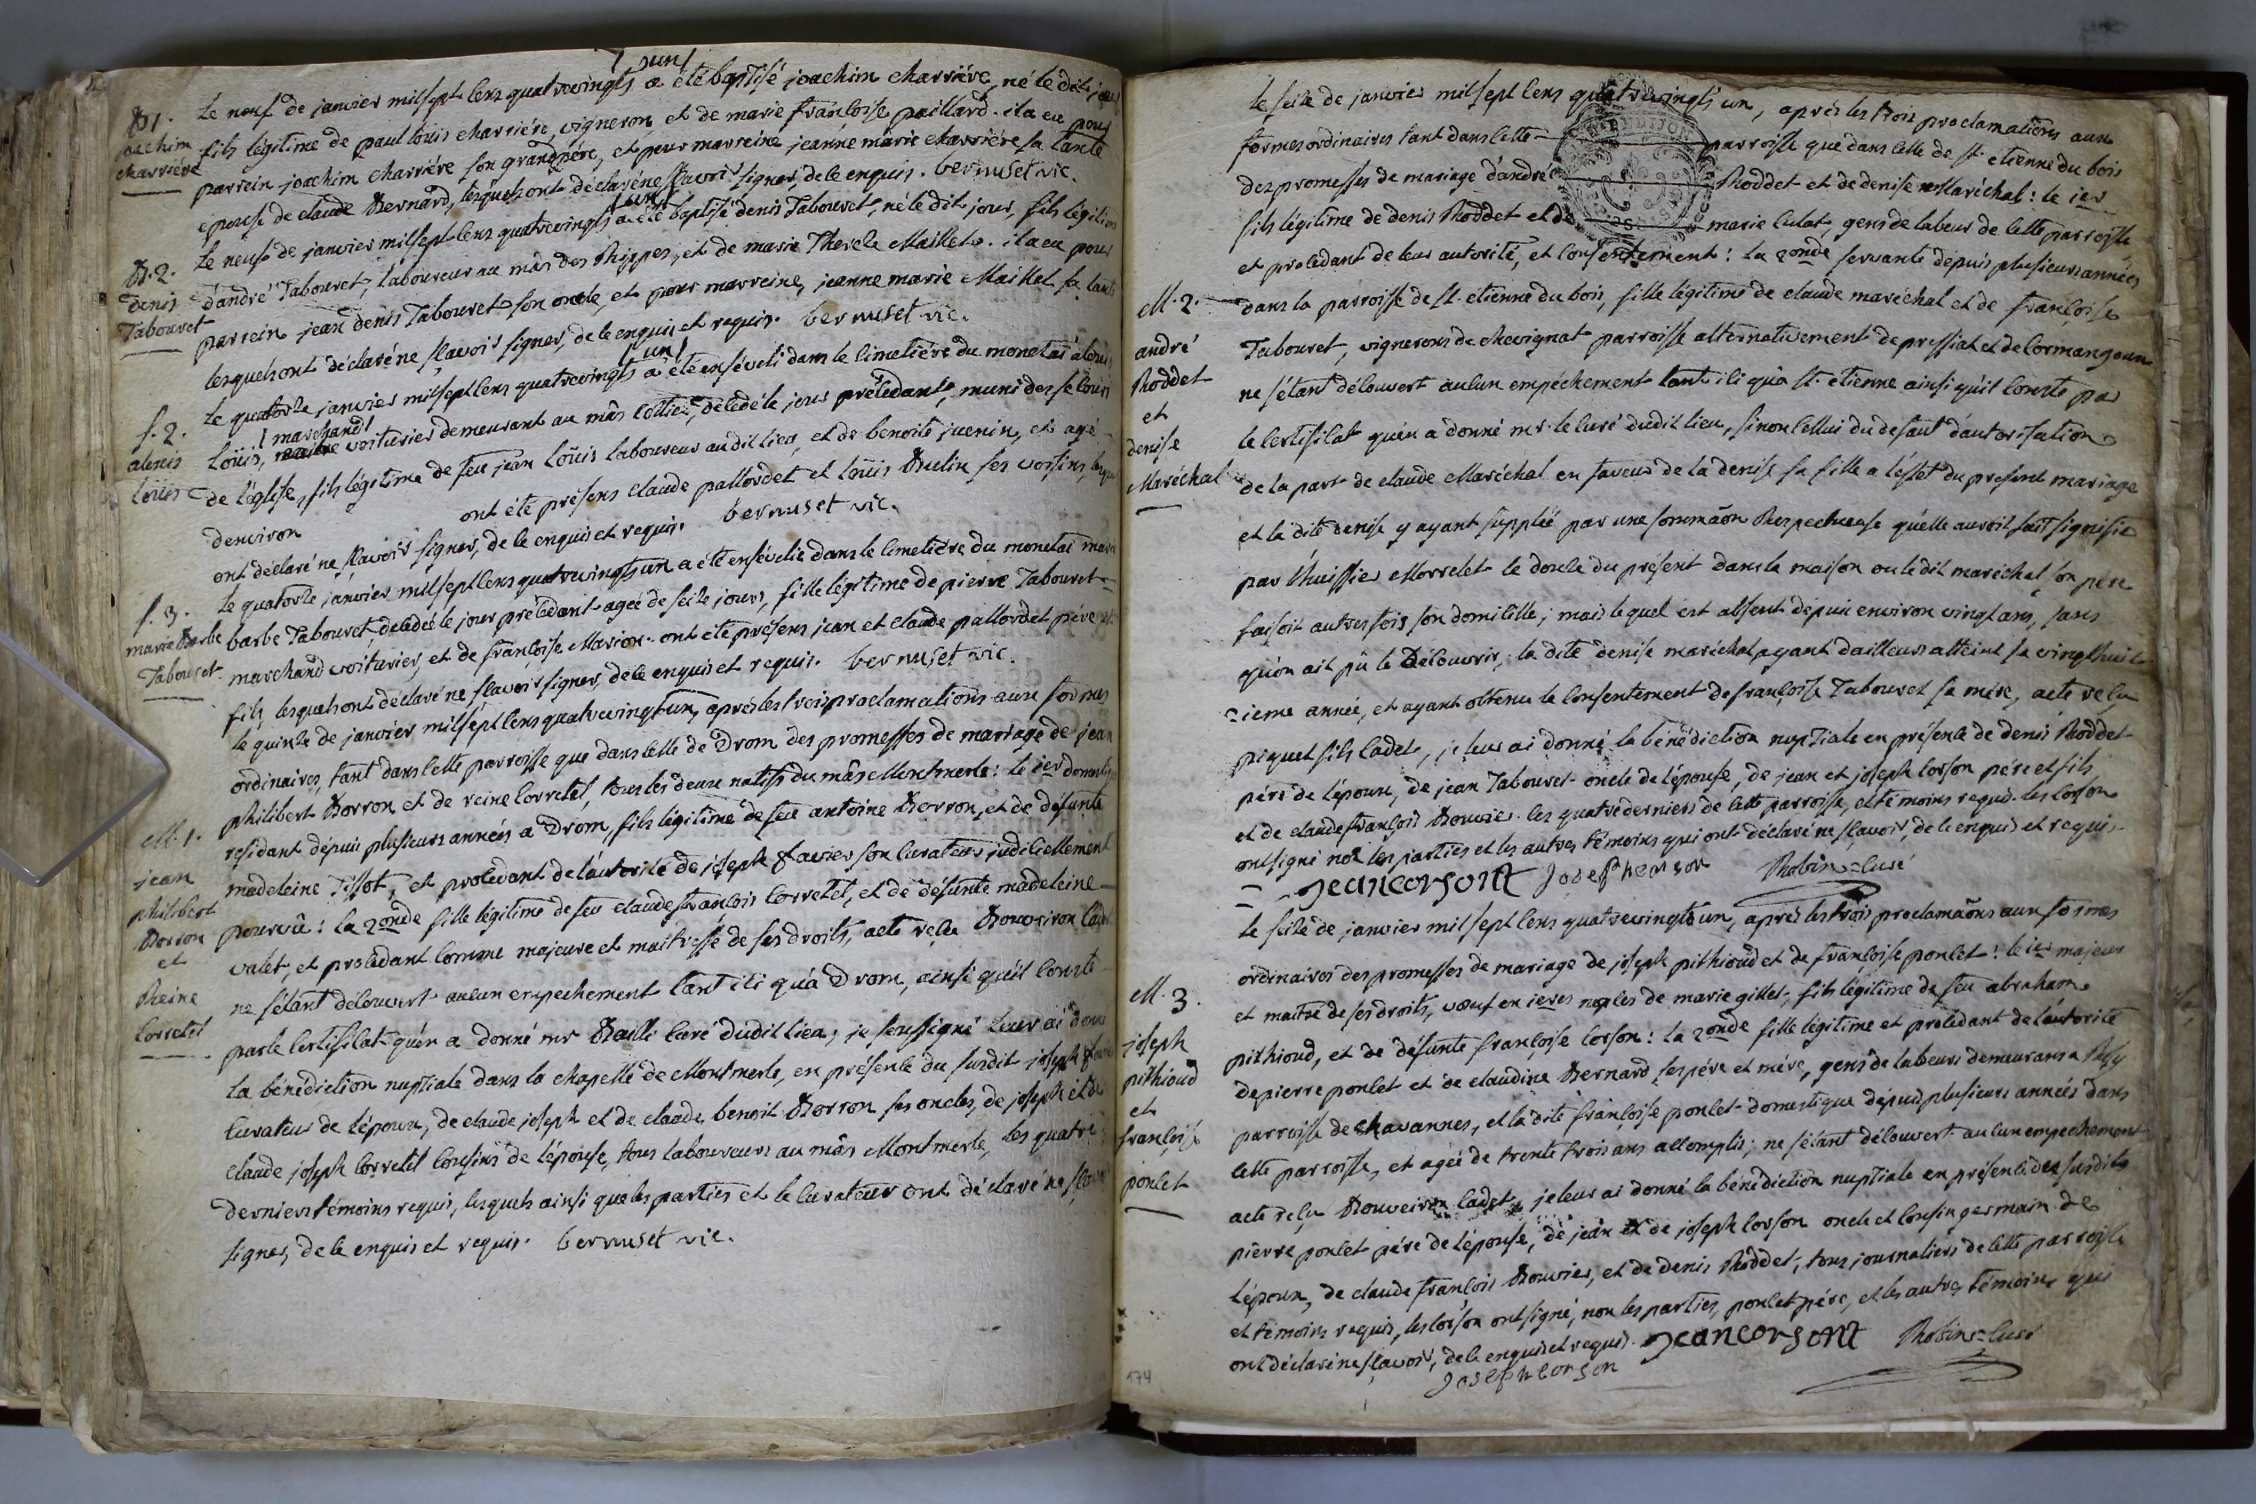 B 1.
joachim
charriére
/ un /
Le neuf de janvier mil sept cens quatrevingts a été baptisé joachim charriére, né le dit jour
fils légitime de paul louis charriére, vigneron, et de marie françoise paillard. il a eu pour
parrein joachim charriére son grandpére, et pour marreine jeanne marie charriére sa tante
epouse de claude Bernard, lesquels ont déclaré ne sçavoir signer, de ce enquis. bernuset vic.
B. 2.
denis
Tabouret
/ un /
Le neuf de janvier mil sept cens quatrevingts a été baptisé denis Tabouret, né le dit jour, fils légitime
d'andré Tabouret, laboureur au mâs des Rippes, et de marie Therese Maillet. il a eu pour
parrein jean denis Tabouret son oncle, et pour marreine, jeanne marie Maillet sa tante
lesquels ont déclaré ne sçavoir signer, de ce enquis et requis. bernuset vic.
f. 2.
alexis
loüis
/ un /
Le quatorze janvier mil sept cens quatrevingts a été enséveli dans le cimetiére du monetai alexis
/ marchand /
Loüis, voiturier demeurant au mâs Cottier, décédé le jour précedant, muni des secours
de l'église, fils légitime de feu jean Loüis laboureur audit lieu, et de benoite juenin, et agé
denviron ont été présens claude pallordet et loüis Bulin ses voisins, lesquels
ont déclaré ne sçavoir signer, de ce enquis et requis. bernuset vic.
f. 3.
marie Barbe
Tabouret
Le quatorze janvier mil sept cens quatrevingts un a été ensévelie dans le cimetiére du monetai marie
barbe Tabouret décédée le jour précedant agée de seize jours, fille légitime de pierre Tabouret
marchand voiturier, et de françoise Marion. ont été présens jean et claude pallordet pére et
fils, lesquels ont déclaré ne sçavoir signer, de ce enquis et requis. bernuset vic.
M. 1.
jean
philibert
Borron
et
Reine
Corretel
le quinze de janvier mil sept cens quatrevingt un, aprés les trois proclamations aux formes
ordinaires, tant dans cette parroisse que dans celle de Drom des promesses de mariage de jean
philibert Borron et de reine Corretel, tous les deux natifs du mâs Montmerle: le 1er domestique
residant dépuis plusieurs années a Drom, fils légitime de feu antoine Borron, et de défunte
madeleine Tissot, et procédant de l'autorité de joseph favier son curateur judiciellement
pourvû: la 2onde fille légitime de feu claude françois Corretel, et de défunte madeleine
valet, et procédant comme majeure et maitresse de ses droits, acte reçu Bouveiron cadet
ne s'étant découvert aucun empechement tant ici qu'à Drom, ainsi qu'il conste
par le certificat qu'en a donné mr Bailli curé dudit lieu; je soussigné leur ai donné
la bénédiction nuptiale dans la chapelle de Montmerle, en présence du susdit joseph favier
curateur de l'époux, de claude joseph et de claude benoit Borron ses oncles, de joseph et de
claude joseph Corretel cousins de l'épouse, tous laboureurs au mâs Montmerle, les quatre
derniers témoins requis, lesquels ainsi que les parties et le curateur ont déclaré ne sçavoir
signer, de ce enquis et requis. bernuset vic.
M. 2.
andré
Roddet
et
denise
Maréchal
Le seize de janvier mil sept cens quatrevingts un, aprés les trois proclamations aux
formes ordinaires tant dans cette parroisse que dans celle de St. etienne du bois
des promesses de mariage d'andré Roddet et de denise Maréchal: le 1er
fils légitime de denis Roddet et de marie Culat, gens de labeur de cette parroisse
et procédant de leur autorité, et consentement: la 2onde servante dépuis plusieurs années
dans la parroisse de St. etienne du bois, fille légitime de claude maréchal et de françoise
Tabouret, vignerons de chevignat parroisse alternativement de pressiat et de Cormangoux
ne s'étant découvert aucun empéchement tant ici qu'a St. etienne ainsi qu'il conste par
le certificat qu'en a donné mr. le curé dudit lieu, sinon celui du défaut d'autorisation
de la part de claude Maréchal en faveur de la denise sa fille a l'éffet du présent mariage
et la dite denise y ayant supplée par une sommãon Respectueuse qu'elle auroit fait signifié
par l'huissier Morrelet le douze du présent dans la maison ou le dit maréchal son pére
faisoit autrefois son domicille; mais lequel est absent dépuis environ vingt ans, sans
qu'on ait pû le Découvrir, la dite denise maréchal ayant dailleurs atteint sa vingthuit
=ieme année, et ayant obtenu le consentement de françoise Tabouret sa mére, acte reçu
piquet fils cadet, je leur ai donné la bénédiction nuptiale en présence de denis Roddet
pére de l'époux, de jean Tabouret oncle de l'épouse, de jean et joseph Corson pére et fils
et de claude françois Bouvier. les quatre derniers de cette parroisse, et témoins requis. les Corson
ont signé non les parties et les autres témoins qui ont déclaré ne sçavoir, de ce enquis et requis.
jean corsont joseph corson Robin = curé
M. 3.
joseph
pithioud
et
françoise
ponlet
Le seize de janvier mil sept cens quatrevingts un, aprés les trois proclamãons aux formes
ordinaires des promesses de mariage de joseph pithioud et de françoise ponlet: le 1er majeur
et maitre de ses droits, veuf en 1eres noçes de marie gillet, fils légitime de feu abraham
pithioud, et de défunte françoise Corson: la 2onde fille légitime et procédant de l'autorité
de pierre ponlet et de claudine Bernard ses pére et mére, gens de labeurs demeurans a
parroisse de chavannes, et la dite françoise ponlet domestique dépuis plusieurs années dans
cette parroisse, et agée de trente trois ans accomplis; ne s'étant découvert aucun empechement
acte reçu Bouveiron cadet, je leur ai donné la bénédiction nuptiale en présence des susdits
pierre ponlet pére de l'épouse, de jean et de joseph Corson oncle et cousin germain de
l'époux, de claude françois Bouvier, et de denis Roddet, tous journaliers de cette parroisse
et témoins requis, les Corson ont signé, non les parties, ponlet pére, et les autres témoins qui
ont déclaré ne sçavoir, de ce enquis et requis. jean corsont Robin = curé
joseph corson
174